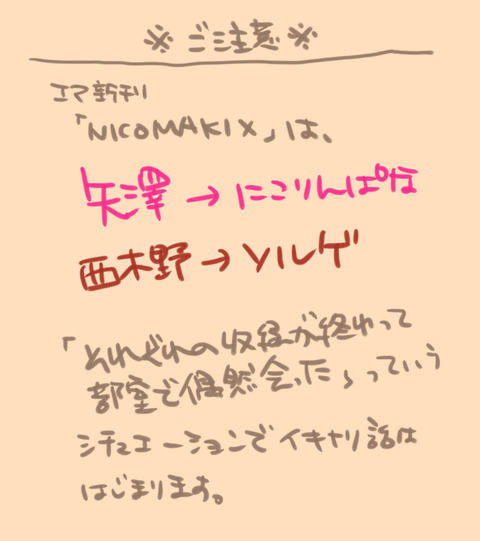 ※ご注意※
エマ新刊
「NICOMAKIX」は、
矢澤→にこりんぱな
西木野→ソルゲ
「それぞれの収録が終わって
部室で偶然会ったら」っていう
シチュエーションでイキナリ話は
はじまります。